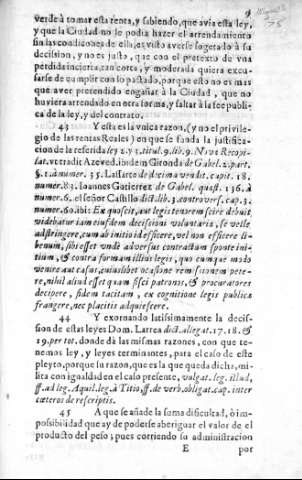 verdè à tomar esta renta, y sabiendo, que avia esta ley,
y que la Ciudad no le podia hazer el arrendamiento
sin las condiciones de ella, es visto averse sugetado à su
decission, y no es justo, que con el pretexto de vna
perdida incierta, tan corta, y moderada quiera excu-
sarse de cumplir con lo pactado, porque esto no es mas
que aver pretendido engañar à la Ciudad, que no
huviera arrendado en otra forma, y faltar à la fee publi-
ca de la ley, y del contrato.
43 Y esta es la vnica razon, (y no el privile-
gio de las rentas Reales) en que se funda la justifica-
cion de la referida ley 2. y 5. titul. 9. lib. 9. Novæ Recopi-
lat. vt tradit Azeved. ibidem Gironda de Gabel. 2. part.
§. 1. à numer. 35. Lassarte de decima vendit. capit. 18.
numer. 83. Ioannes Gutierrez de Gabel. quæst. 136. à
numer. 6. el señor Castillo dict. lib. 3. controvers. cap. 3.
numer. 60. ibi: Ex quo scit, aut legis tenorem scire debuit
videbatur iam eiusdem decissioni voluntariè, se velle
adstringere, cum ab initio id efficere, vel non efficere li-
berum, sibi esset vndè adversus contractum spontè ini-
tium, & contra formam illius legis, quo cumque modo
venire aut casus, cuiuslibet ocasione remissionem pete-
re, nihil aliud esset quam fisci patronis, & procuratores
decipere, fidem tacitam, ex cognitione legis publica
frangere, nec placitis adquiescere.
44 Y exornando latissimamente la decis-
sion de estas leyes Dom. Larrea dict. allegat. 17. 18. &
19. per tot. donde dà las mismas razones, con que te-
nemos ley, y leyes terminantes, para el caso de este
pleyto, porque la razon, que es la que queda dicha, mi-
lita con igualdad en el caso presente, vulgat. leg. illud,
ff. ad leg. Aquil. leg. à Titio, ff. de verb. obligat. cap. inter
cæteras de rescriptis.
45 A que se añade la suma dificultad, ò im-
possibilidad que ay de poderse aberiguar el valor de el
producto del peso, pues corriendo su administracion
E por